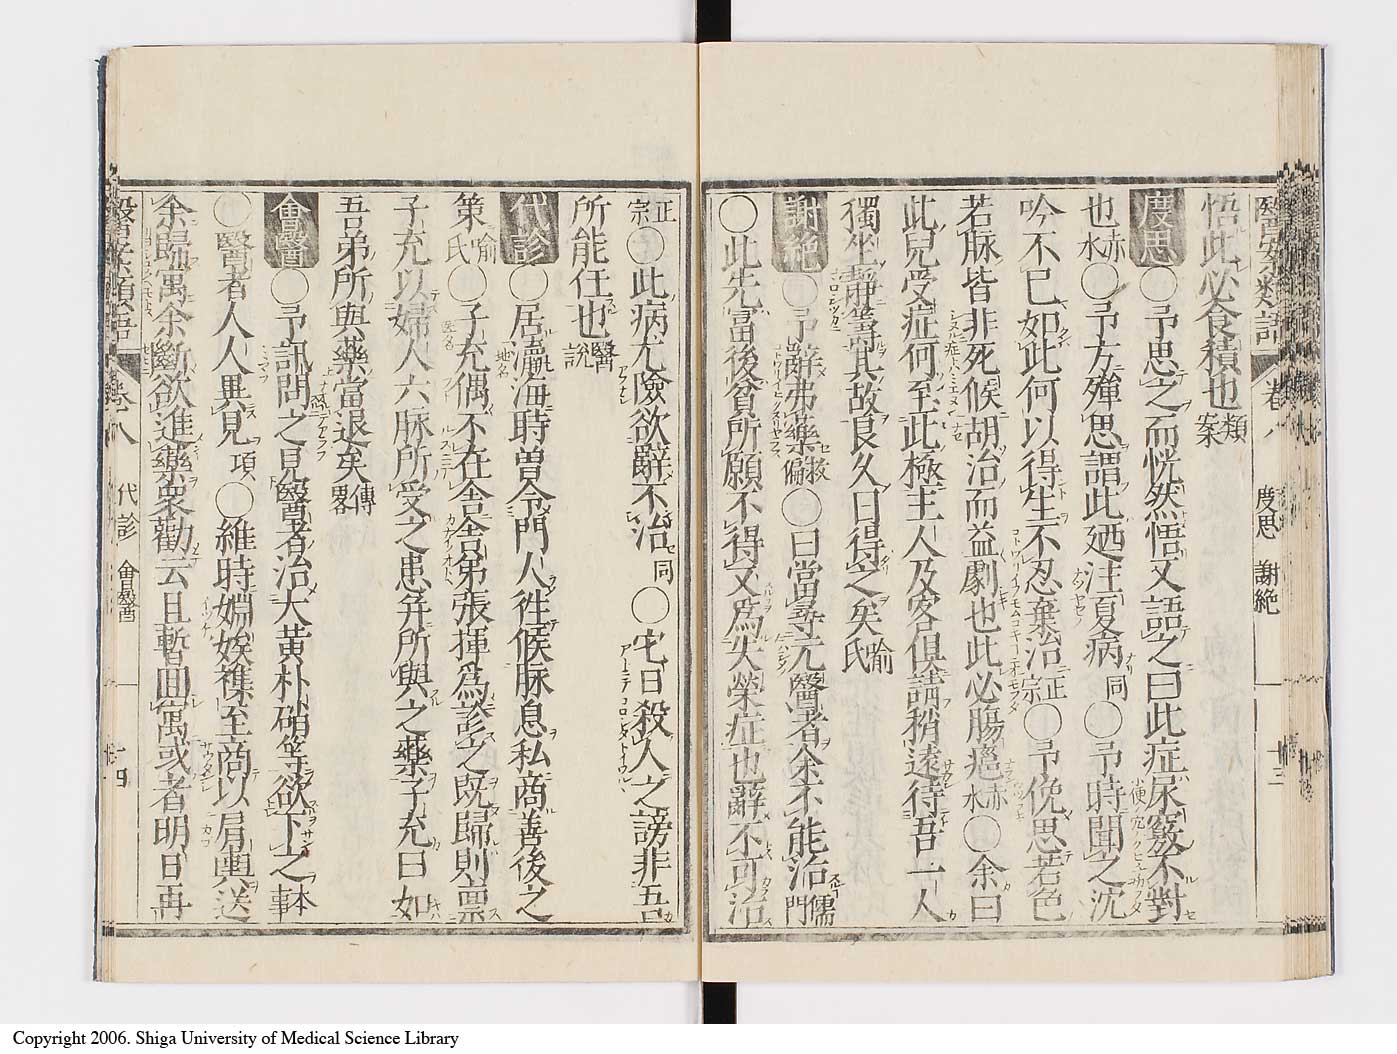 醫案類語 卷八 度思 謝絶 十三
悟此必食積也 類案
度思 ○予思之而恍然悟又語之曰此症尿竅不對
也 赤水 ○予方殫思謂此廼注夏病 同 ○予時聞之沈
吟不已如此何以得生不忍棄治 正宗 ○予俛思若色
若脉皆非死候胡治而益劇也此必腸癰 赤水 ○余曰
此兒受症何至此極主人及客俱請稍遠待吾一人
獨坐靜籌其故良久曰得之矣 喻氏
謝絶 ○予辭弗藥 救偏 ○曰當尋元醫者余不能治 儒門
○此先富後貧所願不得又爲失榮症也辭不可治
正宗 ○此病尤險欲辭不治 同 ○它日殺人之謗非吾
所能任也 醫說
代診 ○居瀛海時曽令門人徃候脉息私商善後之
策 喻氏 ○子充偶不在舍舍弟張揮爲診之既歸則禀
子充以婦人六脉所受之患并所與之藥子充曰如
吾弟所與藥當退矣 傳畧
會醫 ○予訊問之見醫者治大黄朴硝等欲下之 本事
○醫者人人異見 項 ○維時婣娭襍至商以肩輿送
余歸寓余斷欲進藥衆勸云且暫回寓或者明日再
醫案類語 卷八 代診 會醫 十四
Copyright 2006. Shiga University of Medical Science Library